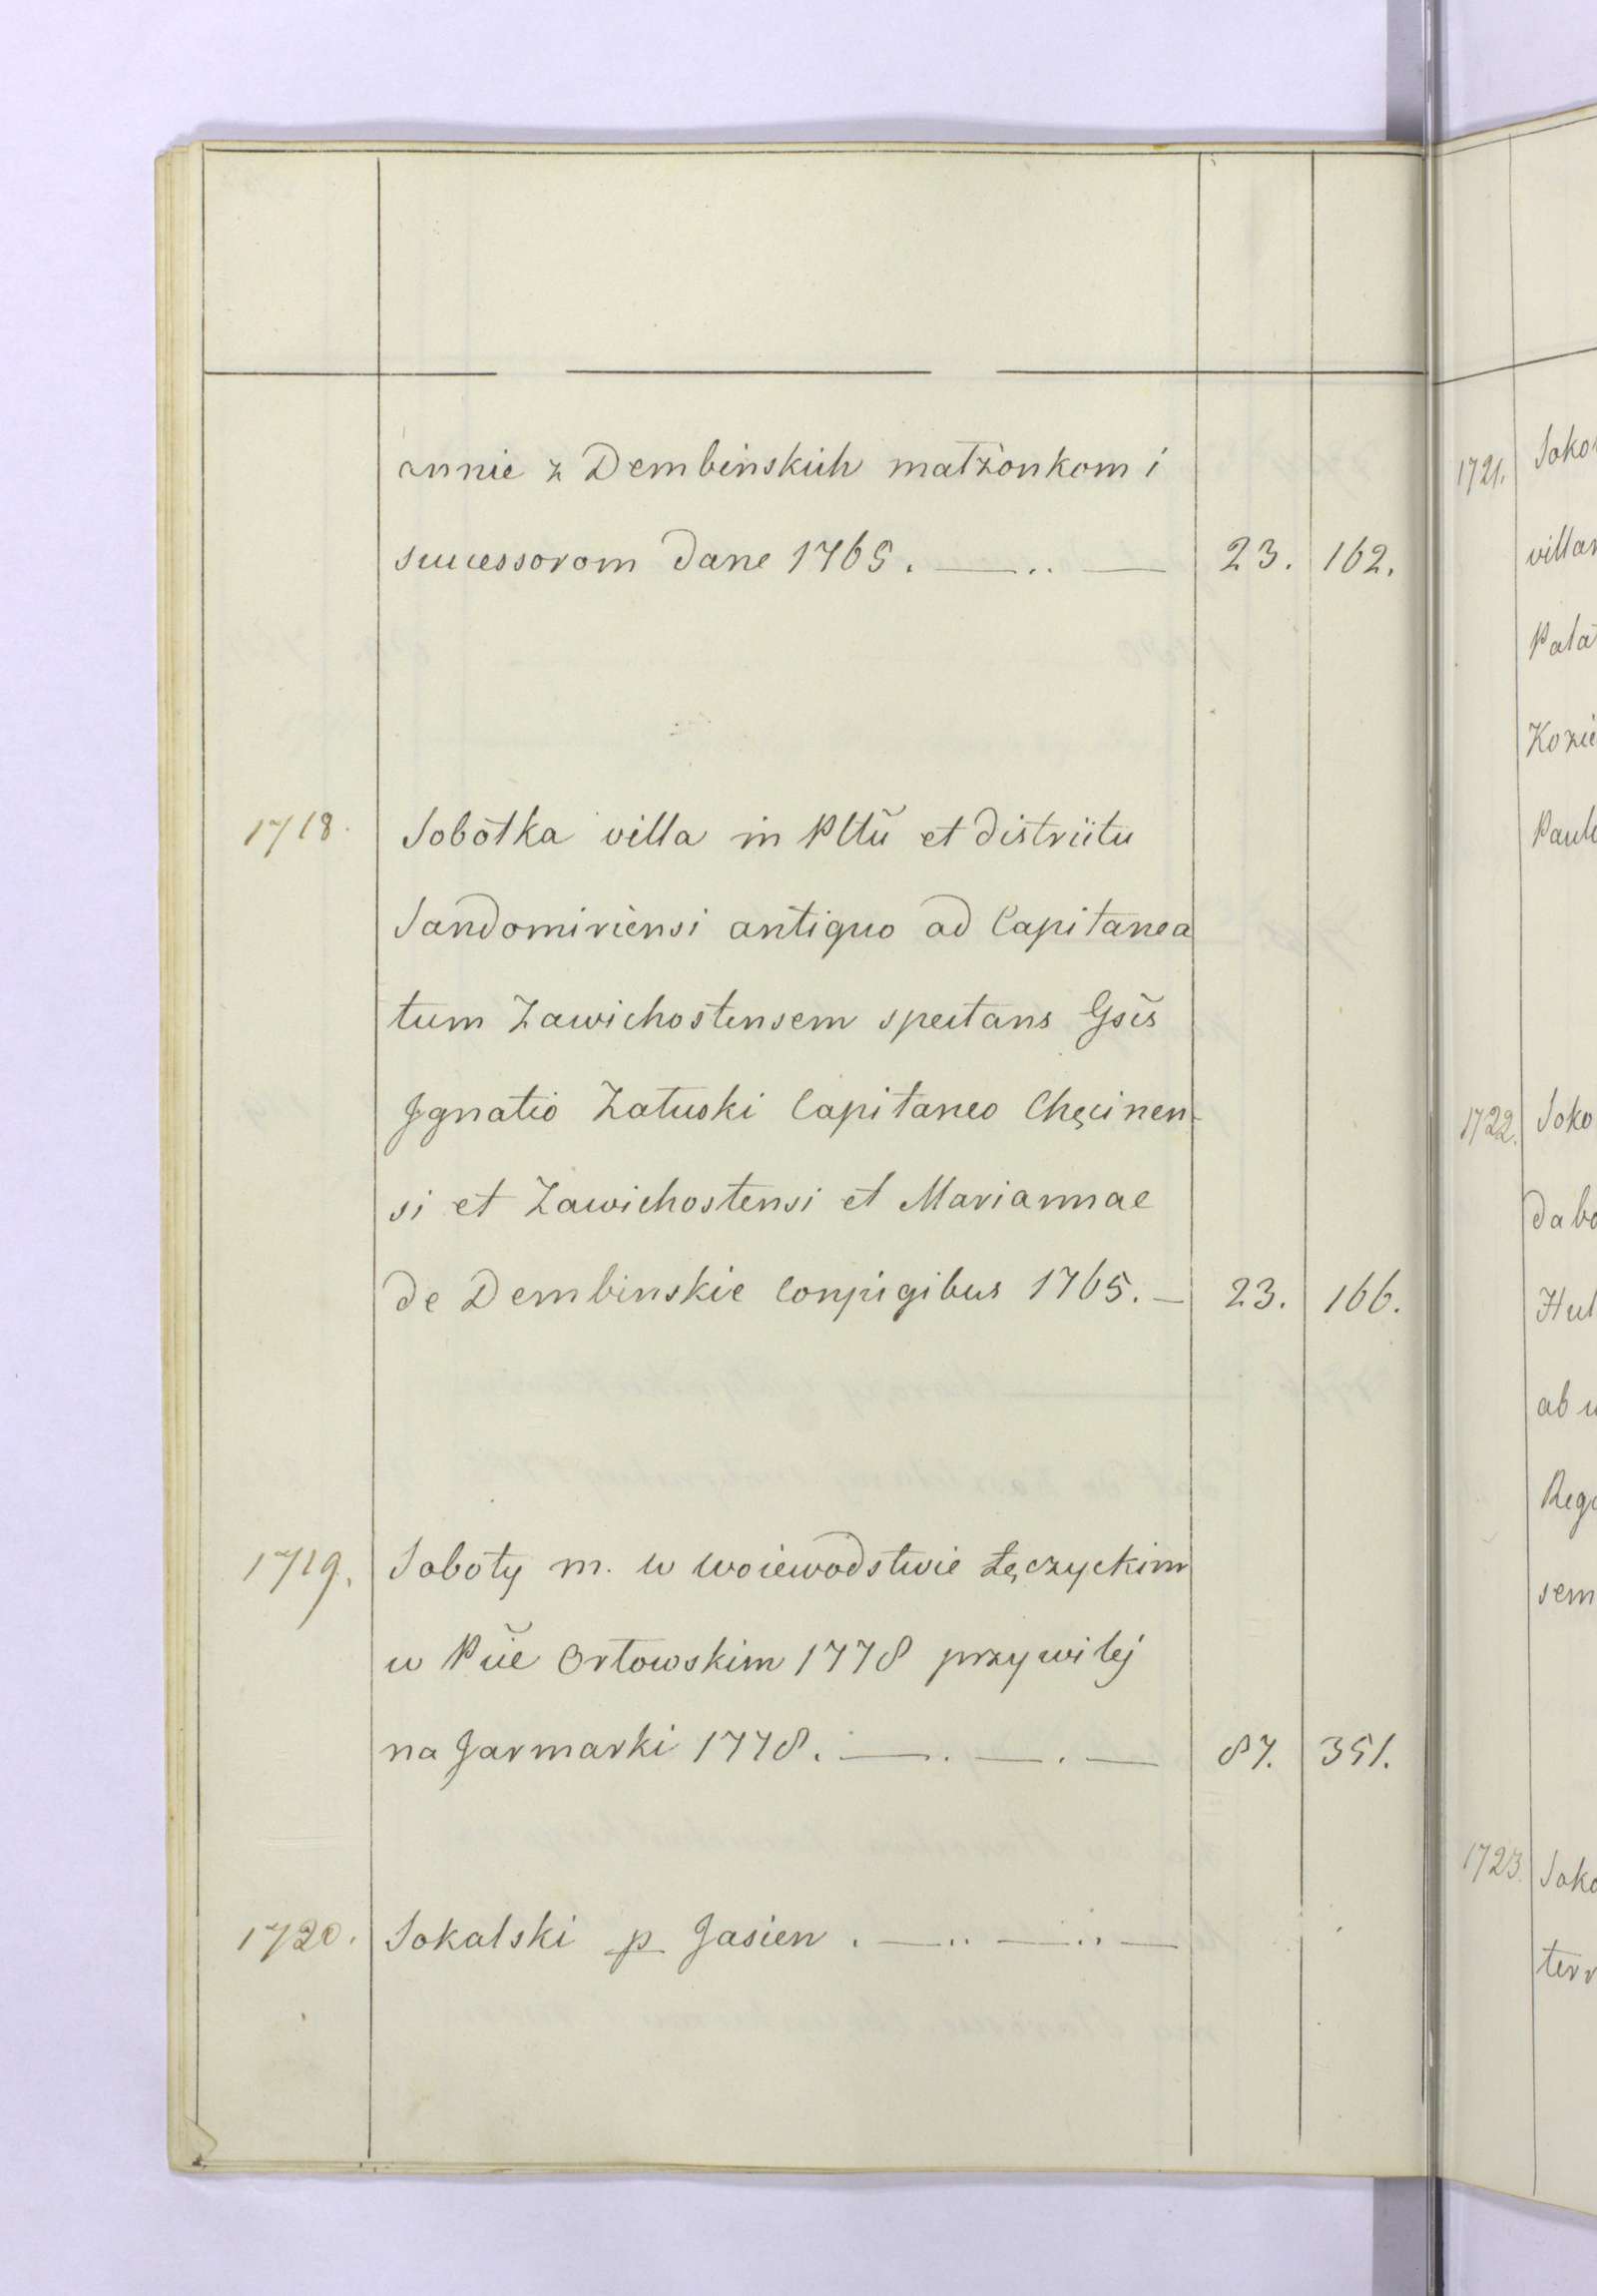 annie z Dembinskich małżonkom i
successorom dane 1765. 23. 162.
1718. Sobótka villa in Pltũ et districtu
Sandomiriensi antiquo ad Capitanea
tum Zawichostensem spectans Gsĩs
Jgnatio Załuski Capitaneo Chęcinen-
si et Zawichostensi et Mariannae
de Dembinskie Conjugibus 1765. 23. 166.
1719. Soboty m. w woiewodstwie Łęczyckim
w Pũe Orłowskim 1778 przywilej
na Jarmarki 1778. 87. 351.
1720. Sokalski p Jasien
1721.
1722.
da bo
ab u
sem
1723.
terr